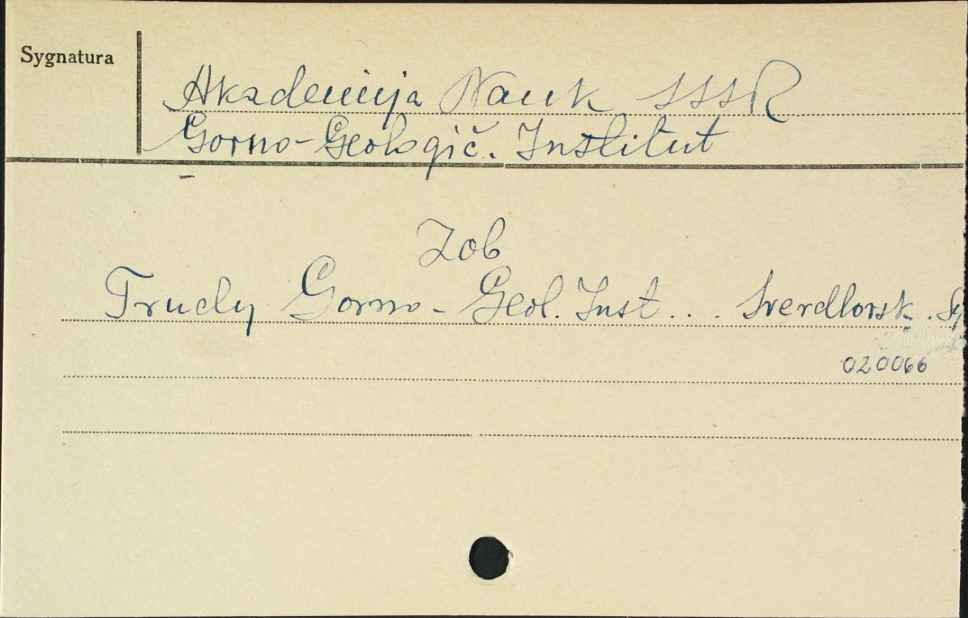 Sygnatura
Akademija Nauk SSSR
Gorno-Geologič. Institut
Zob
Trudy Gorno-Geol. Inst... Sverdlovsk.
020066